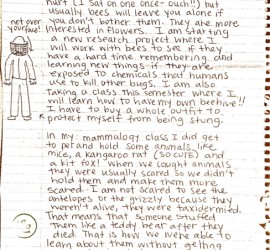 hurt (I sat on one once- ouch!!) but
usually bees will leave you alone if
you don't bother them. They are more
interested in flowers. I am starting
a new research project where I
will work with bees to see if they
have a hard time remembering and
learning new things if they are
exposed to chemicals that humans
use to kill other bugs. I am also
taking a class this semester where I
will learn how to have my own beehive!!
I have to buy a whole outfit to
protect myself from being stung.
net over
your face!
In my mammalogy class I did get
to pet and hold some animals, like
mice, a kangaroo rat (SO CUTE) and
a kit fox! When we caught animals
they were usually scared so we didn't
hold them and make them more
scared. I am not scared to see the
antelopes or the grizzly because they
weren't alive, they were taxidermied.
That means that someone stuffed
them like a teddy bear after they
died. That is how we were able to
learn about them without getting
3